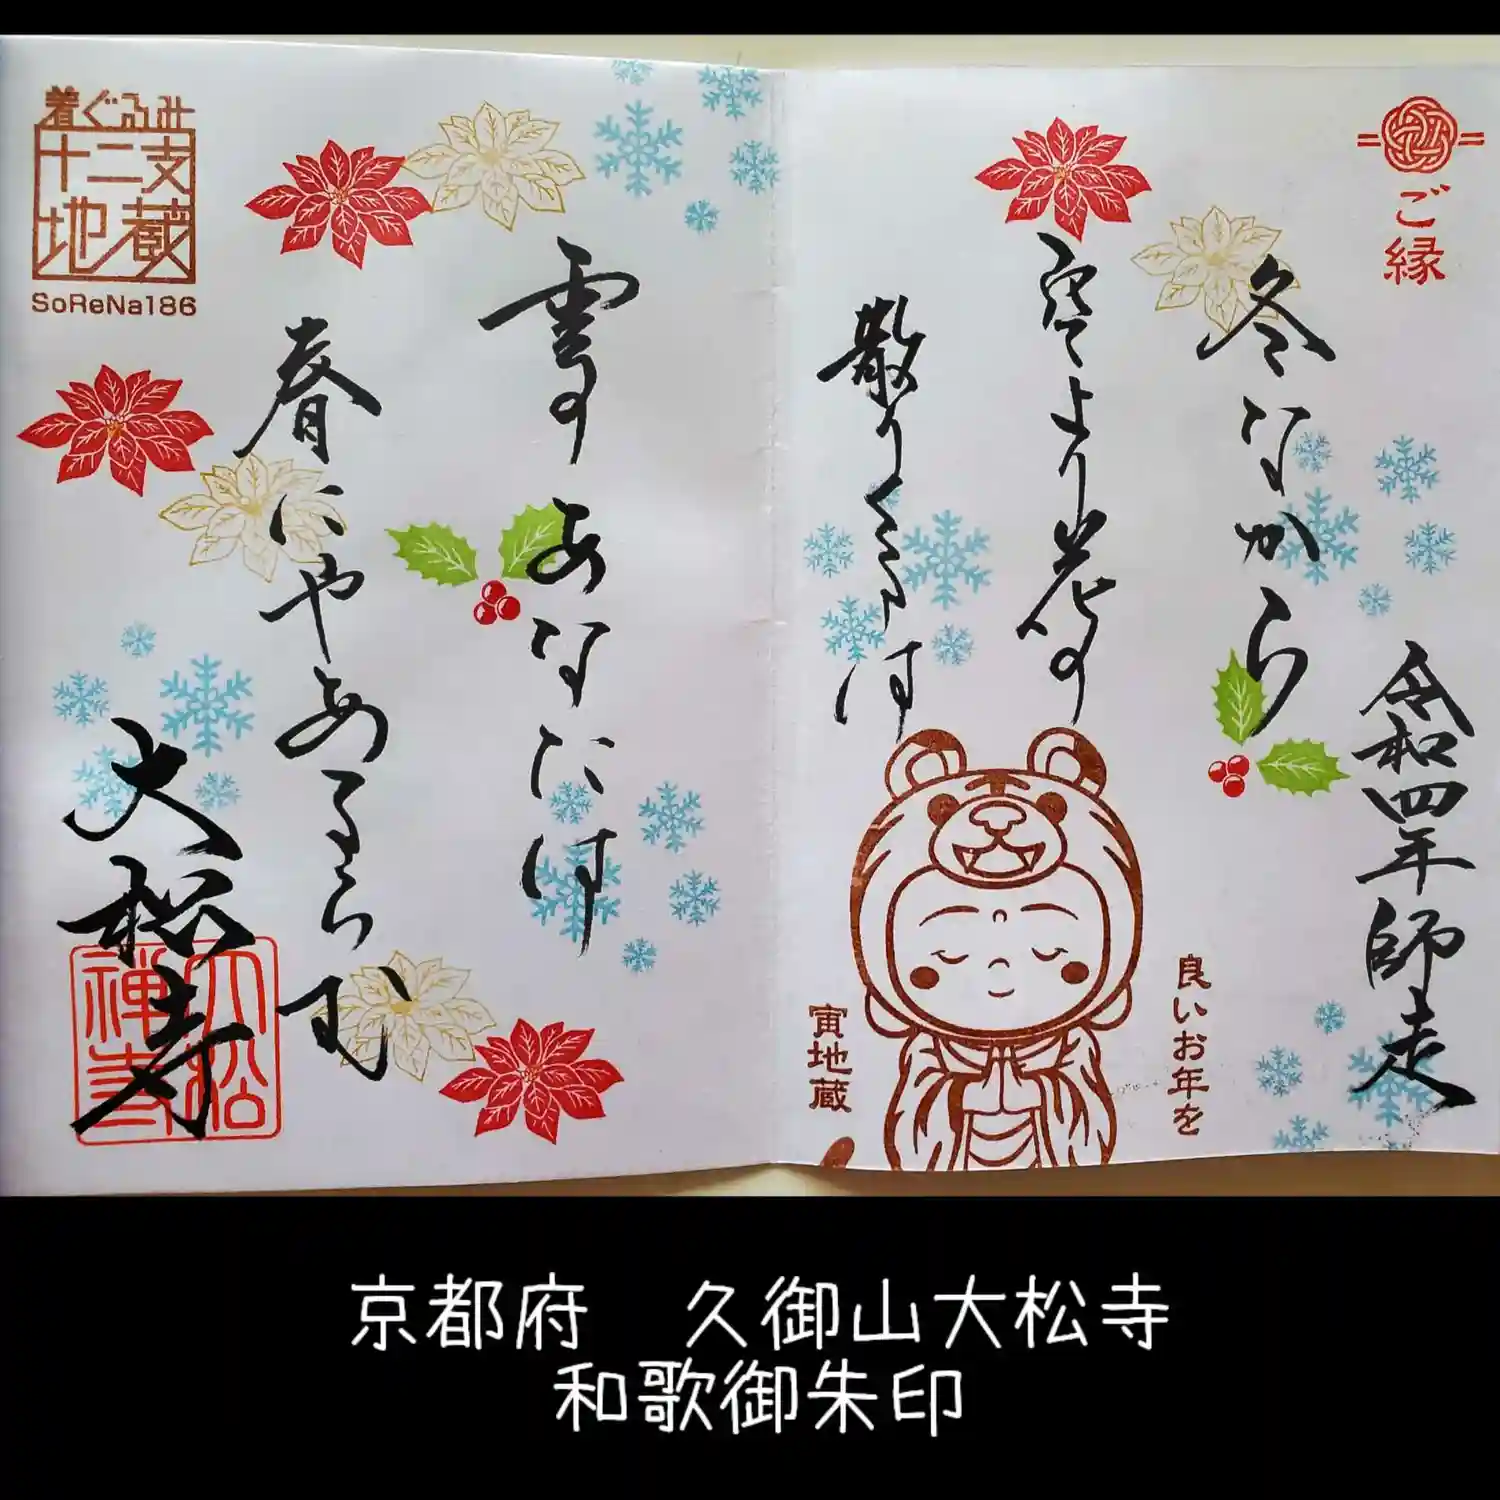 ご縁
令和四年師走
冬なから
空より花の
散りくるは
良いお年を
寅地蔵
雲のあなたは
春にやあるらむ
大松寺
大松
禅寺
着ぐるみ
十二支
地蔵
SoReNa186
京都府　久御山大松寺
和歌御朱印